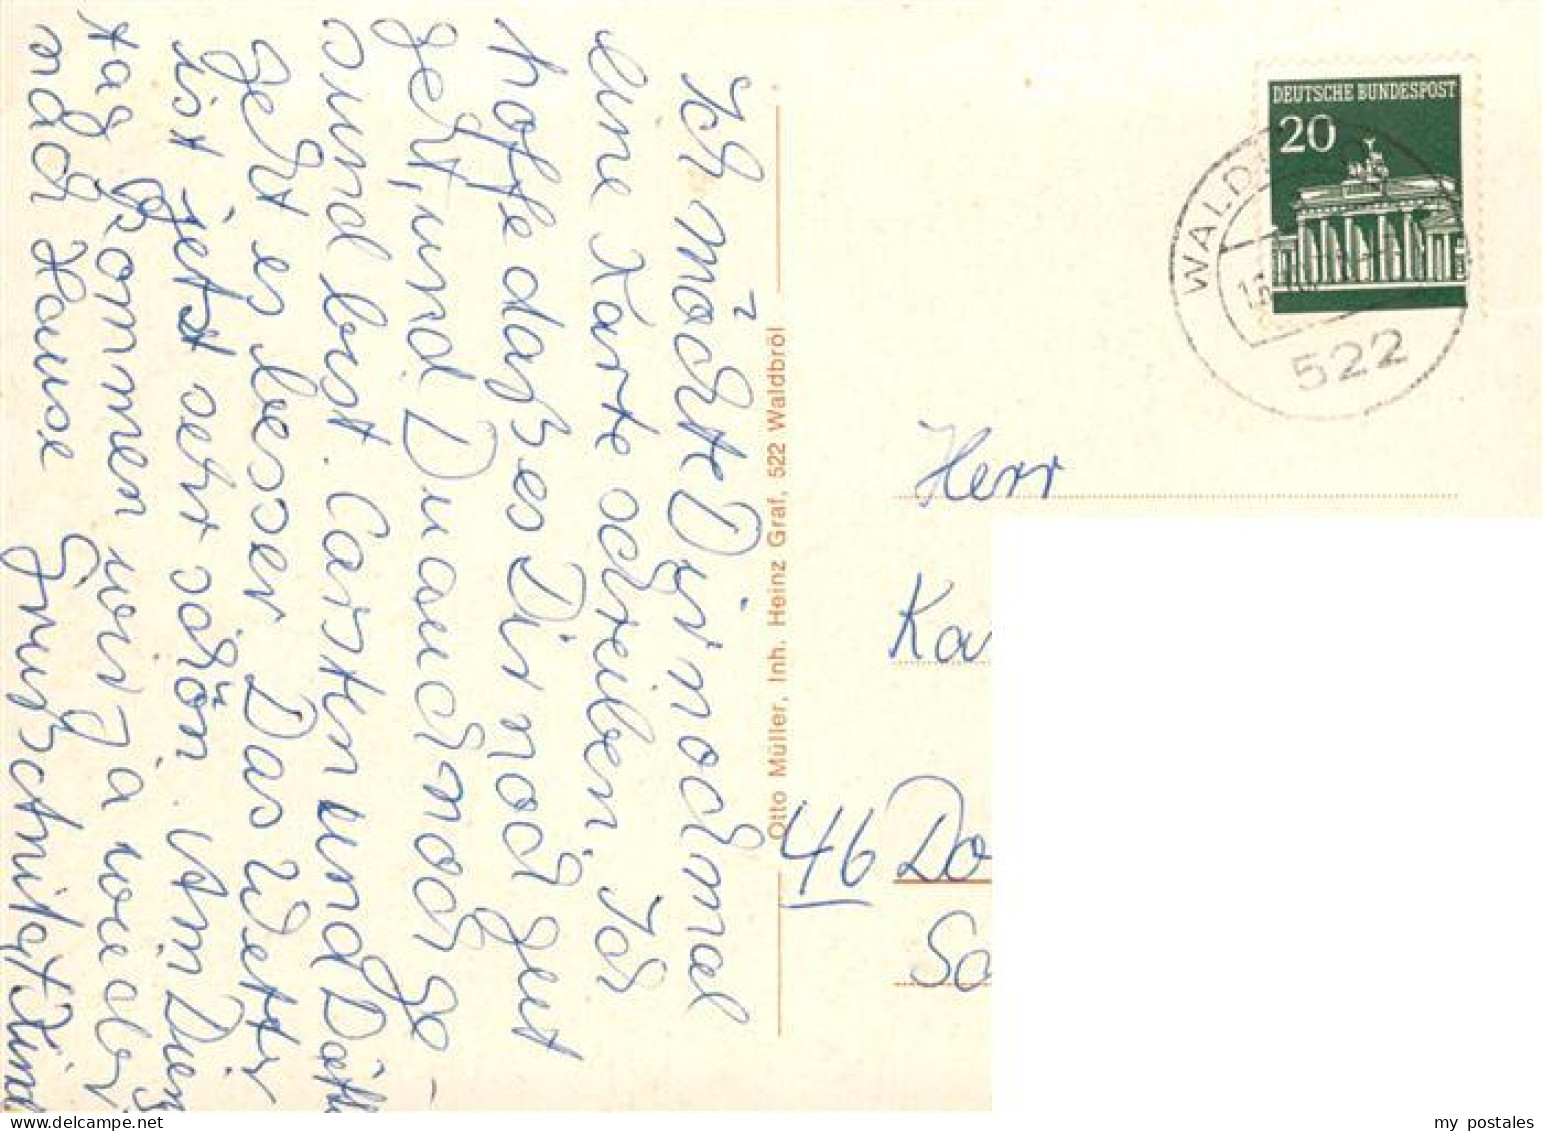 Ich möchte Dir noch mal
eine Karte schreiben. Ich
hoffe daß es Dir noch gut
geht, und Du auch noch ge-
sund bist. Carsten und
geht es besser Das Wetter
ist jetzt sehr schön. Am Diens
tag kommen wir ja wieder
nach Hause
Gruß
Otto Müller, Inh. Heinz Graf, 522 Waldbröl
DEUTSCHE BUNDESPOST
20
WALD
522
Herr
Ka
46 Do
So
my postales